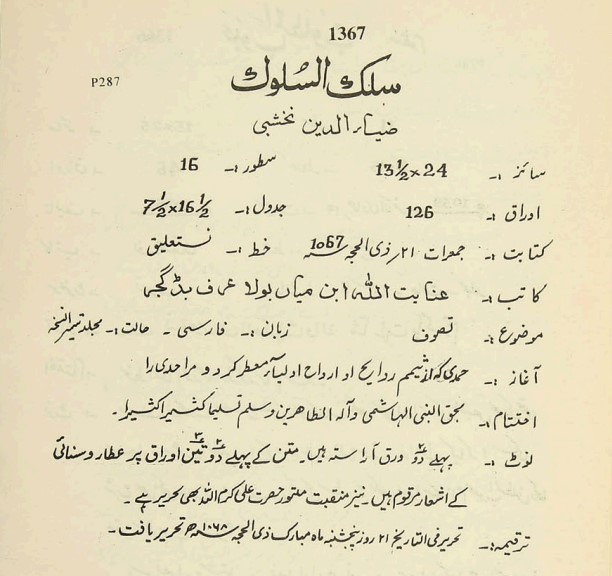 1367
P287
سلک السلوک
ضیاء الدین نخشبی
سائز :۔ 13½x24 سطور :۔ 16
اوراق :۔ 126 جدول :۔ 7½x16½
کتابت :۔ جمعرات ۲۱/ ذی الحجہ سنہ 1067 خط :۔ نستعلیق
کاتب :۔ عنایت اللہ ابن میاں بولا عرف بڈ گجر
موضوع :۔ تصوف زبان :۔ فارسی ۔ حالت :۔ مجلد تیسر النسخہ
آغاز :۔ حمدی کہ از شمیم روایح او ارواح اولیاء معطر گردد مر احدی را
اختتام :۔ بحق النبی الہاشمی وآلہ الطاھرین وسلم تسلیما کثیرا کثیرا۔
نوٹ :۔ پہلے دو ۲ ورق آراستہ ہیں۔ متن کے پہلے دو ۲ تین ۳ اوراق پر عطار و سنائی
کے اشعار مرقوم ہیں۔ نیز منقبت حضرت علی کرم اللہ بھی تحریر ہے ۔
ترقیمہ :۔ تحریر فی التاریخ ۲۱ روز پنجشنبہ ماہ مبارک ذی الحجہ سنہ ۱۰۶۸ھ تحریر یافت ۔